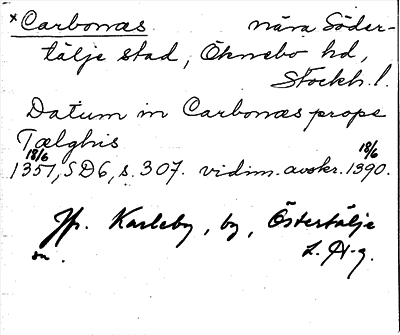 *Carbonæs nära Söder-
tälje stad, Öknebo hd,
Stockh. l.
Datum in Carbonæs prope
Tælghis
18/6 18/6
1351, SD6, s. 307. vidim. avskr. 1390.
Jfr. Karleby, by, Östertälje
sn. L. H-g.